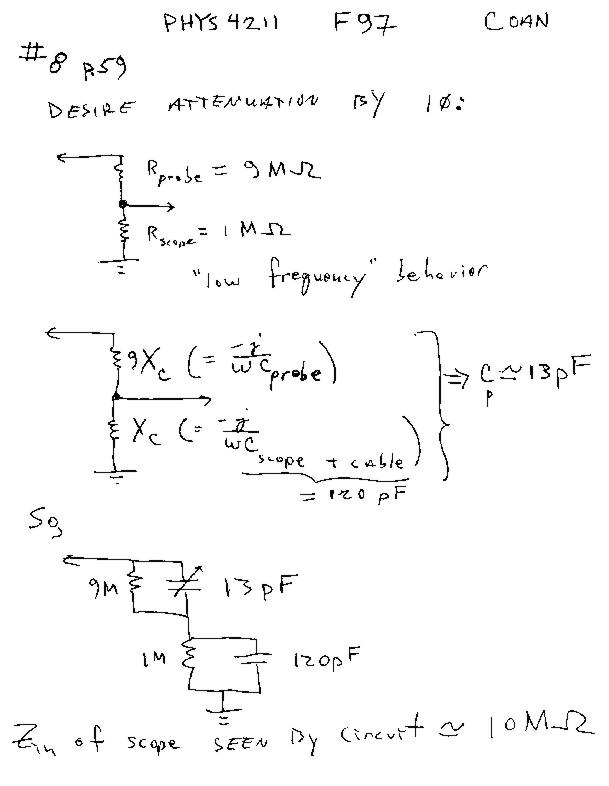 PHYS 4211 F97 COAN
#8 p.59
DESIRE ATTENUATION BY 10:
R probe = 9 MΩ
R scope = 1 MΩ
"low frequency" behavior
9Xc (= -j/ωC probe)
Xc (= -j/ωC scope + cable)
= 120 pF
⇒ Cp ≃ 13pF
So,
9M 13pF
1M 120pF
Zin of scope SEEN By circuit ≃ 10MΩ